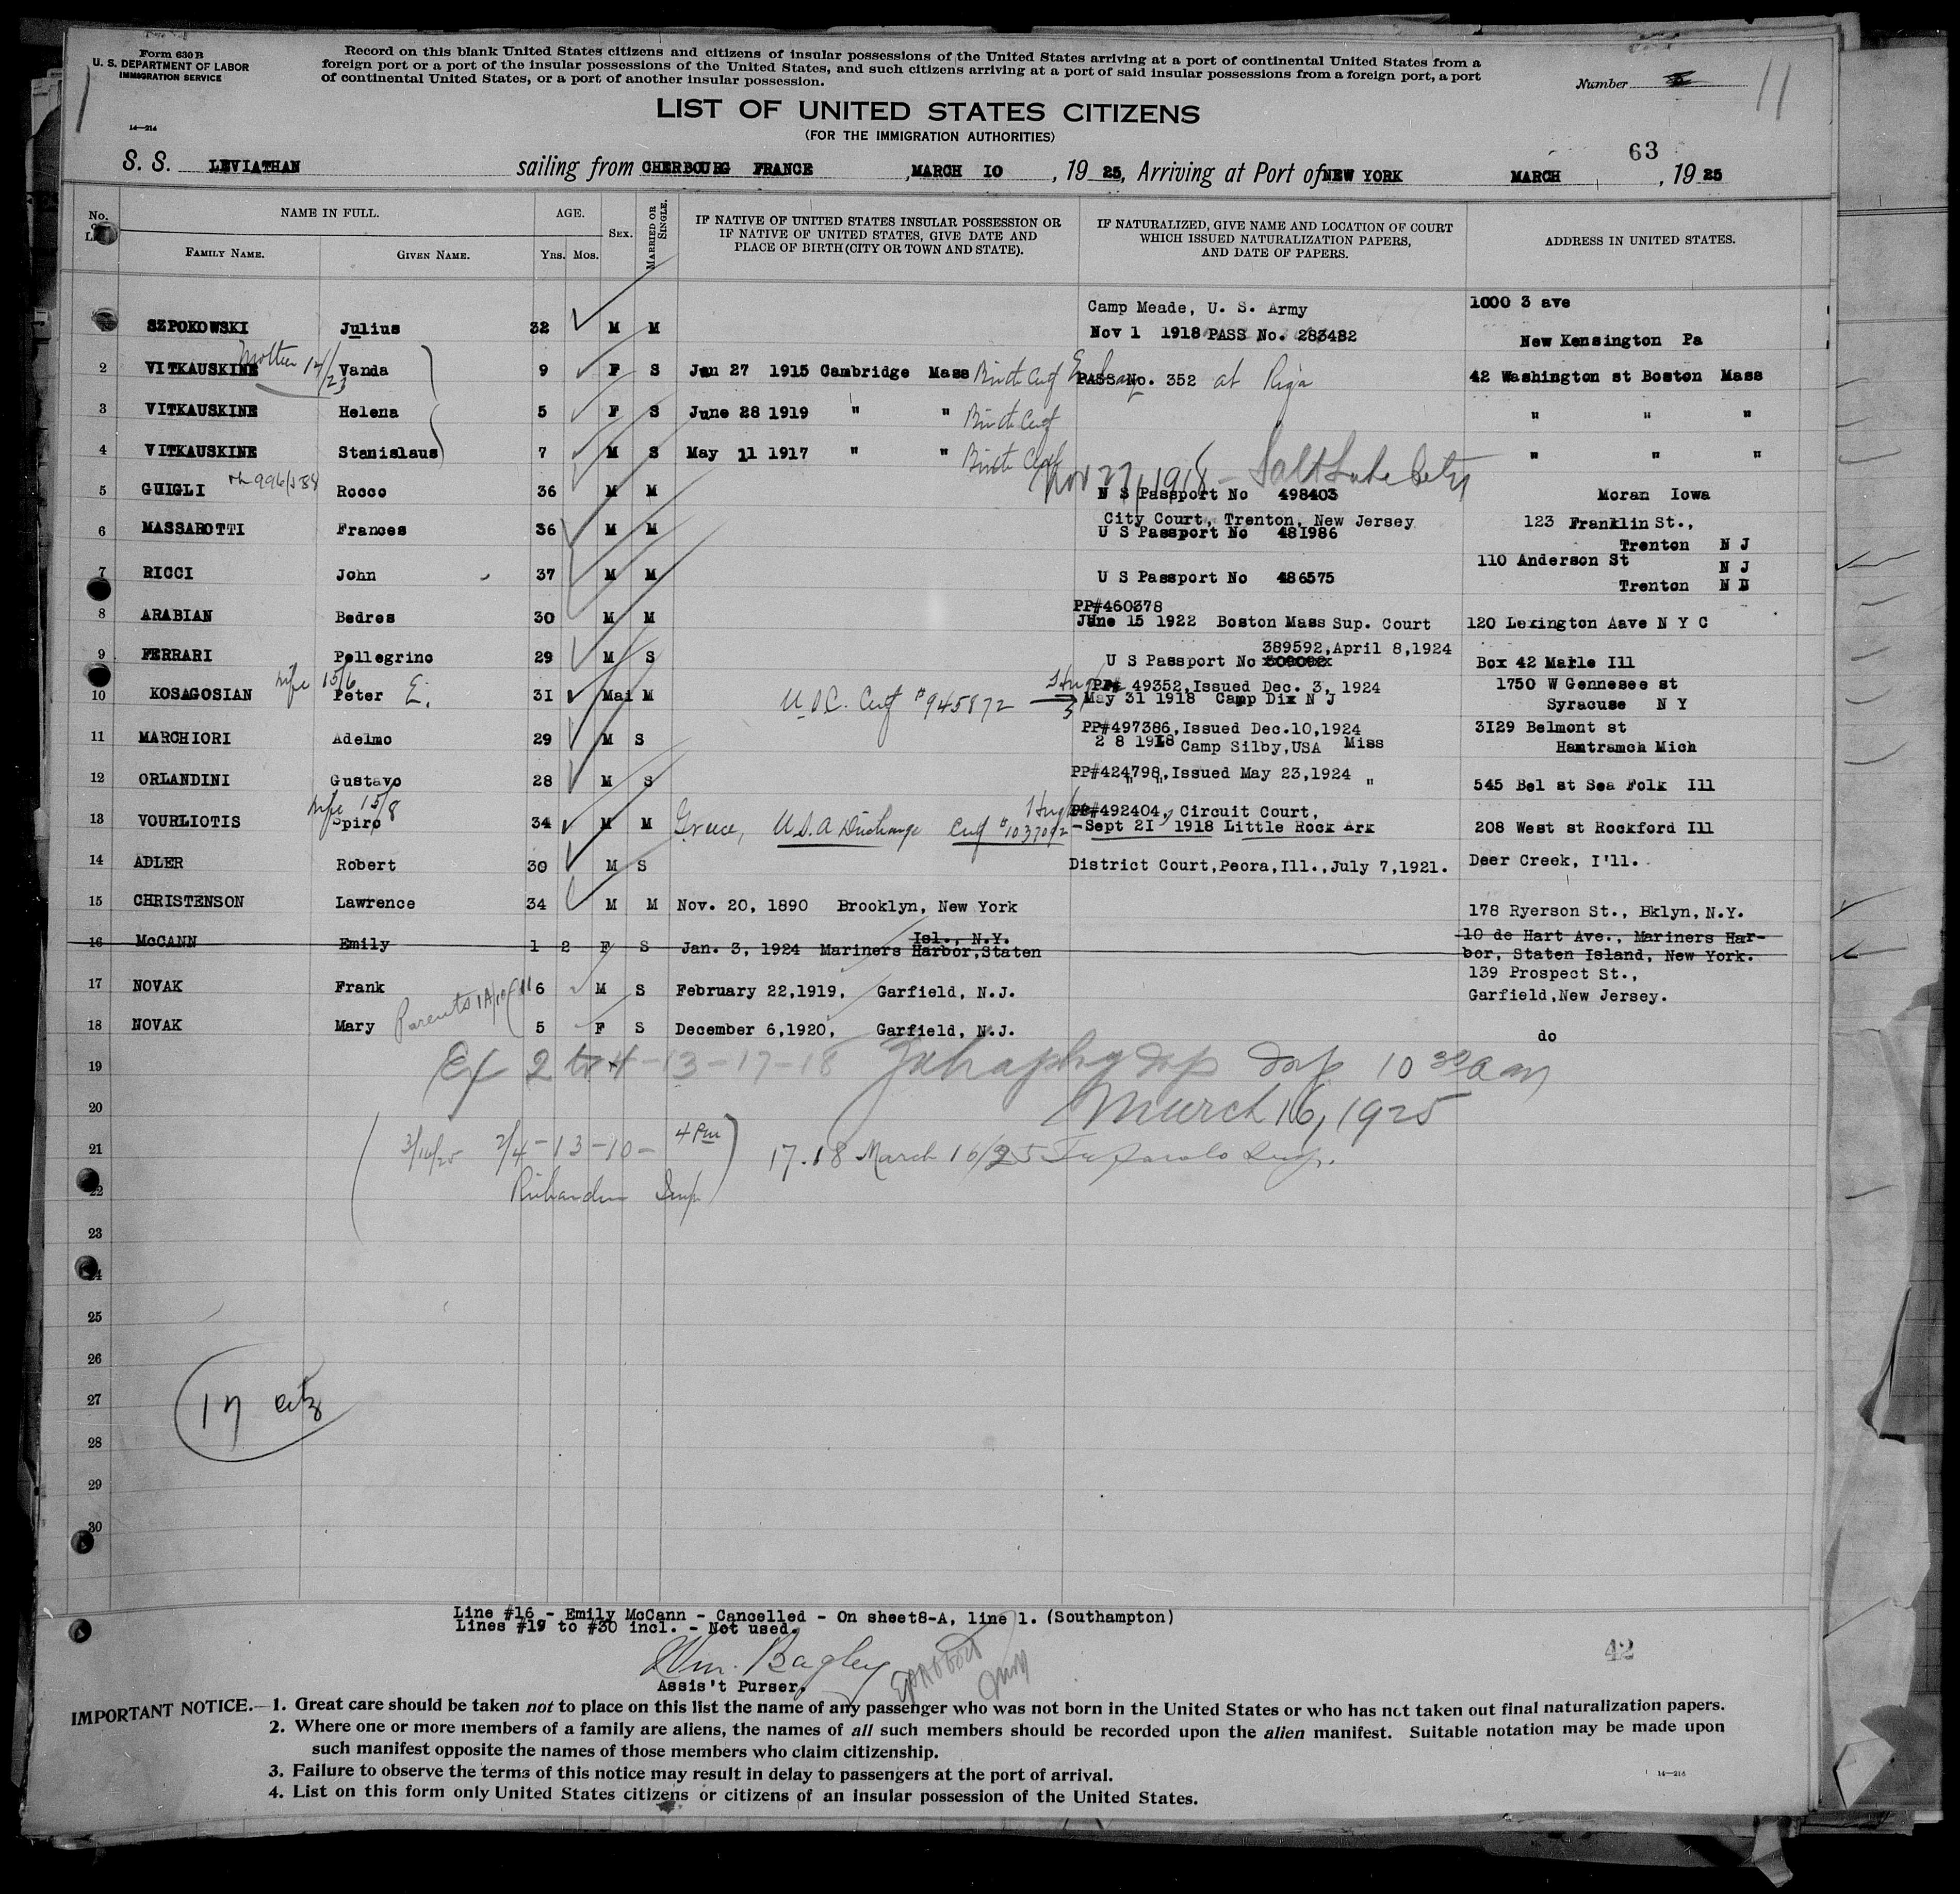 Form 630 B
U. S. DEPARTMENT OF LABOR
IMMIGRATION SERVICE
Record on this blank United States citizens and citizens of insular possessions of the United States arriving at a port of continental United States from a
foreign port or a port of the insular possessions of the United States, and such citizens arriving at a port of said insular possessions from a foreign port, a port
of continental United States, or a port of another insular possession.
Number
11
14—214
LIST OF UNITED STATES CITIZENS
(FOR THE IMMIGRATION AUTHORITIES)
63
S. S. LEVIATHAN sailing from CHERBOURG FRANCE , MARCH 10 , 19 25, Arriving at Port of NEW YORK MARCH , 19 25
No. NAME IN FULL. AGE. SEX. MARRIED OR SINGLE.
FAMILY NAME. GIVEN NAME. YRS. MOS.
IF NATIVE OF UNITED STATES INSULAR POSSESSION OR
IF NATIVE OF UNITED STATES, GIVE DATE AND
PLACE OF BIRTH (CITY OR TOWN AND STATE).
IF NATURALIZED, GIVE NAME AND LOCATION OF COURT
WHICH ISSUED NATURALIZATION PAPERS,
AND DATE OF PAPERS.
ADDRESS IN UNITED STATES.
Camp Meade, U. S. Army 1000 3 ave
SZPOKOWSKI Julius 32 M M Nov 1 1918 PASS No. 283482 New Kensington Pa
Mother 14/23
2 VITKAUSKINE Vanda 9 F S Jan 27 1915 Cambridge Mass Birth Cert PASS No. 352 at Riga 42 Washington st Boston Mass
3 VITKAUSKINE Helena 5 F S June 28 1919 " " Birth Cert " " "
4 VITKAUSKINE Stanislaus 7 M S May 11 1917 " " Birth Cert " " "
Nov 27, 1918 - Salt Lake City
5 GUIGLI Rocco 36 M M N S Passport No 498403 Moran Iowa
City Court, Trenton, New Jersey 123 Franklin St.,
6 MASSAROTTI Frances 36 M M U S Passport No 481986 Trenton N J
110 Anderson St N J
7 RICCI John 37 M M U S Passport No 486575 Trenton N
PP#460378
8 ARABIAN Bedros 30 M M June 15 1922 Boston Mass Sup. Court 120 Lexington Aave N Y C
389592, April 8, 1924
9 FERRARI Pellegrino 29 M S U S Passport No Box 42 Marle Ill
wife 15/6 PP# 49352, Issued Dec. 3, 1924 1750 W Gennesee st
10 KOSAGOSIAN Peter E. 31 Mal M U.S.C. Cert #945872 May 31 1918 Camp Dix N J Syracuse N Y
PP#497386, Issued Dec.10,1924 3129 Belmont st
11 MARCHIORI Adelmo 29 M S 2 8 1918 Camp Silby,USA Miss Hamtramch Mich
12 ORLANDINI Gustavo 28 M S PP#424798, Issued May 23,1924 " " " 545 Bel st Sea Folk Ill
wife 15/8 PP#492404, Circuit Court,
13 VOURLIOTIS Spiro 34 M M Greece, U.S.A Discharge Cert #1037092 -Sept 21, 1918 Little Rock Ark 208 West st Rockford Ill
14 ADLER Robert 30 M S District Court, Peora, Ill., July 7, 1921. Deer Creek, I'll.
15 CHRISTENSON Lawrence 34 M M Nov. 20, 1890 Brooklyn, New York 178 Ryerson St., Bklyn, N.Y.
Isl., N.Y. 10 de Hart Ave., Mariners Har-
16 McCANN Emily 1 2 F S Jan. 3, 1924 Mariners Harbor, Staten bor, Staten Island, New York.
139 Prospect St.,
17 NOVAK Frank 6 M S February 22,1919, Garfield, N.J. Garfield, New Jersey.
Parents
18 NOVAK Mary 5 F S December 6,1920, Garfield, N.J. do
19 Ex 2 to 4-13-17-18 Insp 10 30 am
20 March 16, 1925
21 3/16/25 2/4-13-10- 4 Pm 17.18 March 16/25 Insp.
22 Richardson Insp
23
24
25
26
27
28
29
30
17 citz
Line #16 - Emily McCann - Cancelled - On sheet8-A, line 1. (Southampton)
Lines #19 to #30 incl. - Not used.
Wm. Bagley
Assis't Purser.
42
IMPORTANT NOTICE.—1. Great care should be taken not to place on this list the name of any passenger who was not born in the United States or who has not taken out final naturalization papers.
2. Where one or more members of a family are aliens, the names of all such members should be recorded upon the alien manifest. Suitable notation may be made upon
such manifest opposite the names of those members who claim citizenship.
3. Failure to observe the terms of this notice may result in delay to passengers at the port of arrival.
4. List on this form only United States citizens or citizens of an insular possession of the United States.
14—214